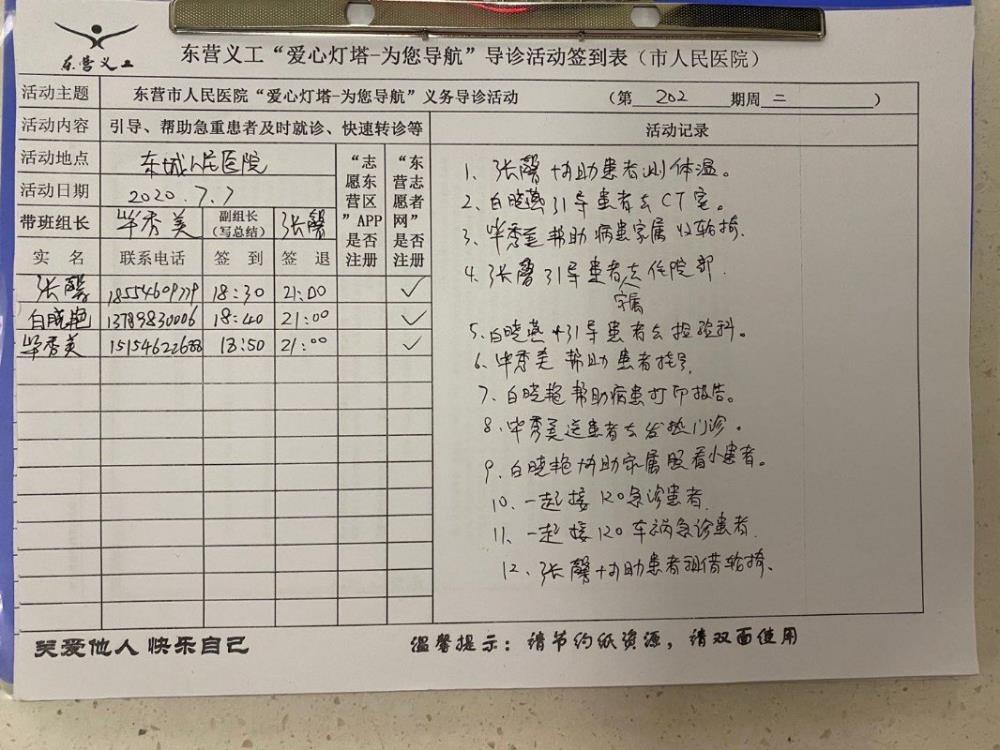 东营义工
东营义工“爱心灯塔-为您导航”导诊活动签到表（市人民医院）
活动主题 东营市人民医院“爱心灯塔-为您导航”义务导诊活动 （第 202 期周 二 ）
活动内容 引导、帮助急重患者及时就诊、快速转诊等 活动记录
活动地点 东城人民医院
活动日期 2020.7.7
带班组长 毕秀美 副组长（写总结） 张馨
“志愿东营区”APP是否注册
“东营志愿者网”是否注册
实名 联系电话 签到 签退
张馨 18:30 21:00 ✓
白晓艳 13789830006 18:40 21:00 ✓
毕秀美 15154622688 18:50 21:00 ✓
1、张馨协助患者测体温。
2、白晓燕引导患者去CT室。
3、毕秀美帮助病患家属收轮椅.
4、张馨引导患者家属去住院部.
5、白晓燕引导患者去检验科。
6、毕秀美帮助患者挂号.
7、白晓艳帮助病患打印报告。
8、毕秀美送患者去发热门诊。
9、白晓艳协助家属照看小患者。
10、一起接120急诊患者.
11、一起接120车祸急诊患者.
12、张馨协助患者租借轮椅.
关爱他人 快乐自己
温馨提示：请节约纸资源，请双面使用